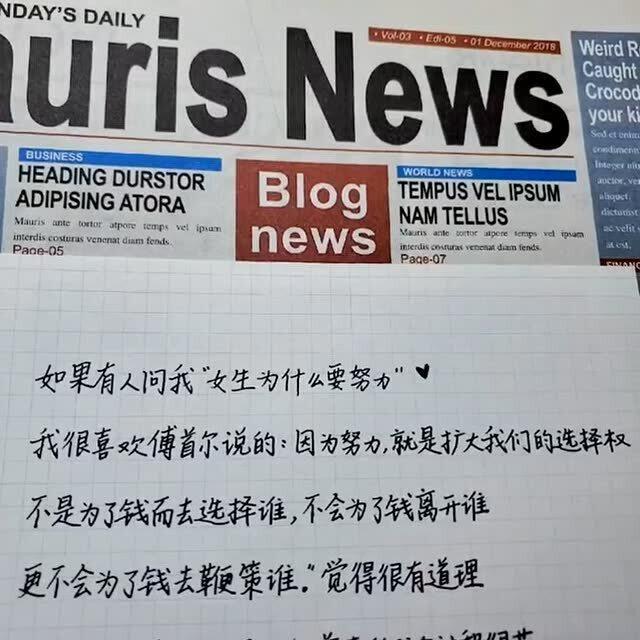 NDAY'S DAILY
auris News
• Vol-03 • Edi-05 • 01 December 2018
Weird R
Caught
Crocod
your ki
Sed et enim
condimentu
Integer nis
auctor, ver
aliquet.
dictumst
ac velit v
at est.
BUSINESS
HEADING DURSTOR
ADIPISING ATORA
Mauris ante tortor atpore temps vel ipsum
interdis costuras venenat diam fends.
Page-05
Blog
news
WORLD NEWS
TEMPUS VEL IPSUM
NAM TELLUS
Mauris ante tortor atpore temps vel ipsum
interdis costuras venenat diam fends.
Page-07
FINANC
如果有人问我"女生为什么要努力" ♥
我很喜欢傅首尔说的:因为努力,就是扩大我们的选择权
不是为了钱而去选择谁,不会为了钱离开谁
更不会为了钱去鞭策谁."觉得很有道理